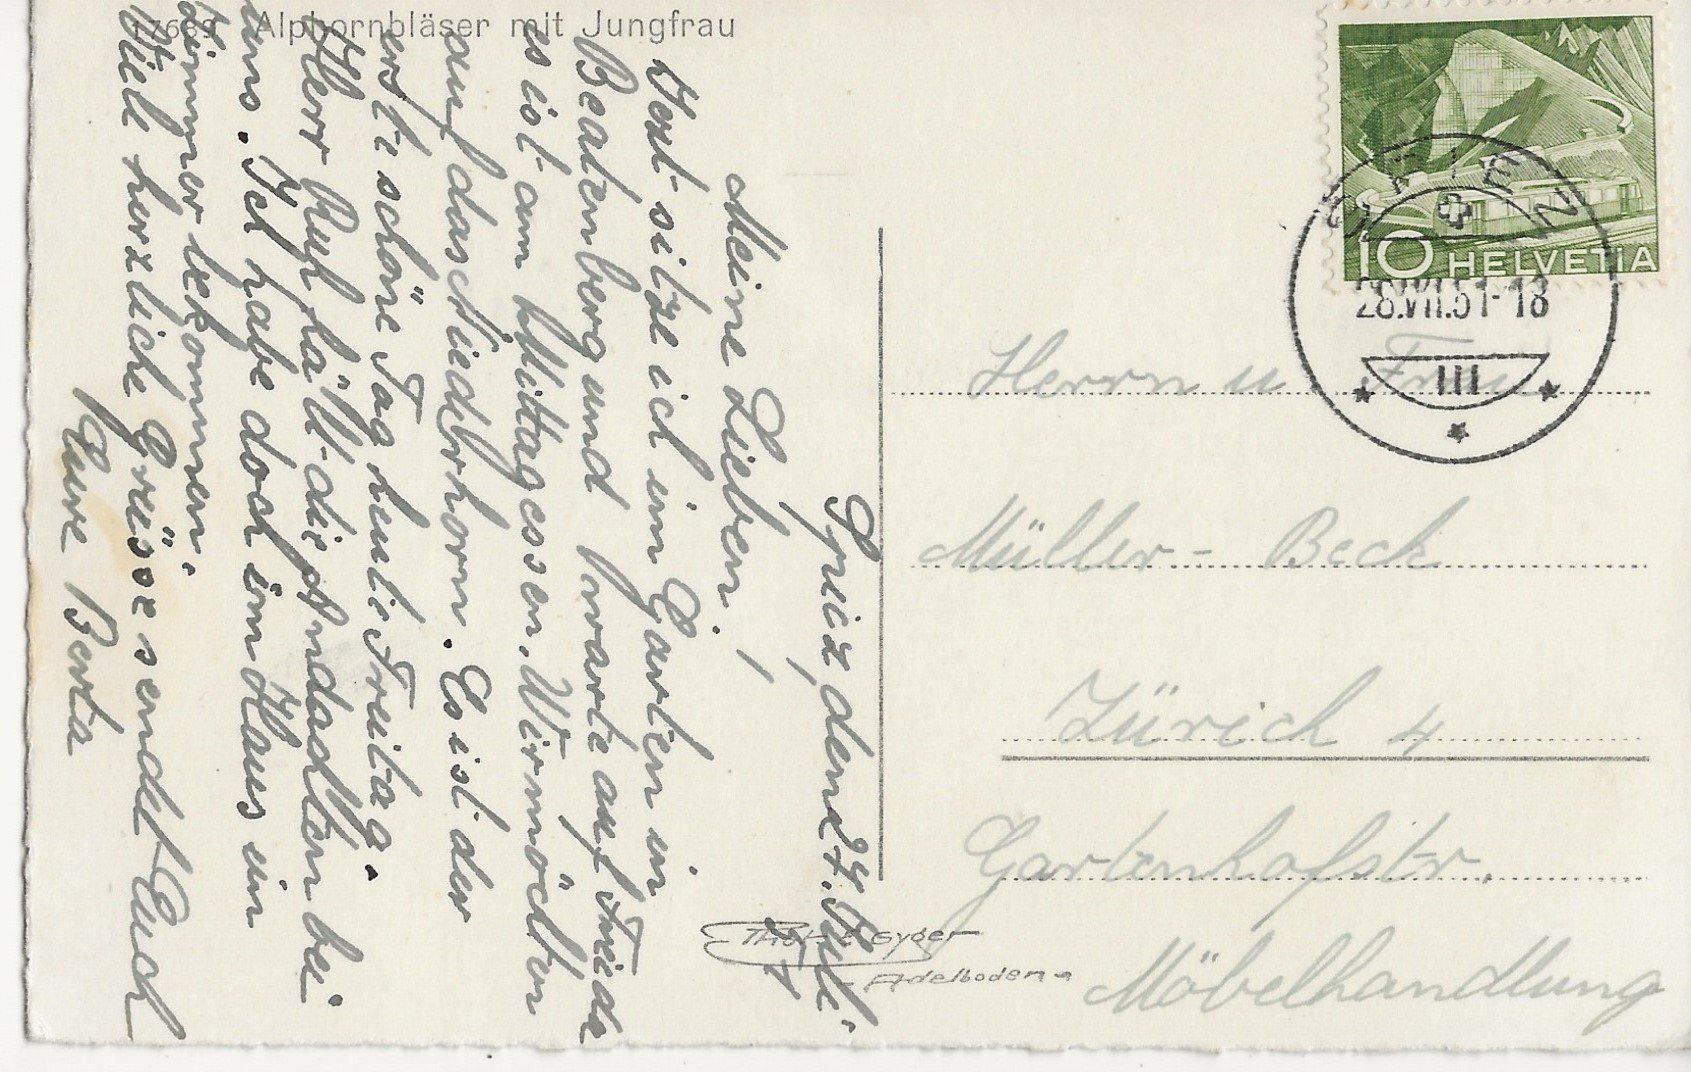 17689 Alphornbläser mit Jungfrau
Spiez, den 27. Juli
Meine Lieben!
Jezt sitze ich im Garten in
Beatenberg und warte auf Frieda
es ist am Mittagessen. Wir möchten
auf das Niederhorn. Es ist der
erste schöne Tag heute Freitag.
Herr Ruf hält die Andachten bei
uns. Ich habe doch im Haus ein
Zimmer bekommen.
Viele herzliche Grüsse sendet Euch
Eure Berta
HELVETIA
10
SPIEZ
28.VII.51-18
III
Herrn u. Frau
Müller-Beck
Zürich 4
Gartenhofstr.
Möbelhandlung
Gyger
Adelboden